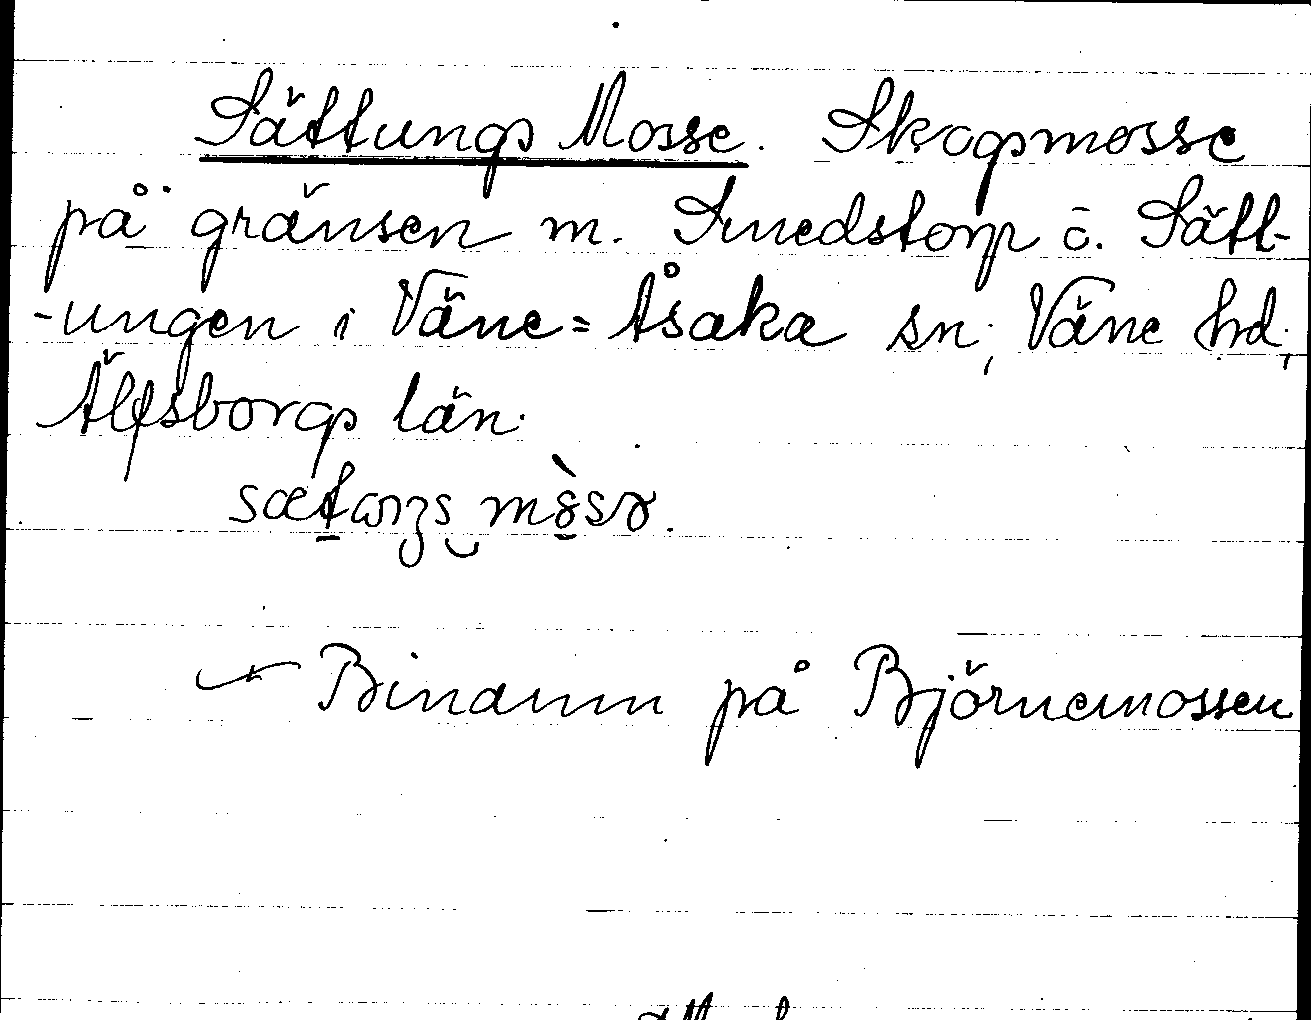 Sättungs Mosse. Skogsmosse
på gränsen m. Smedstorp o. Sätt-
-ungen i Väne=Åsaka sn, Väne hd,
Älfsborgs län.
Binamn på Björnemossen